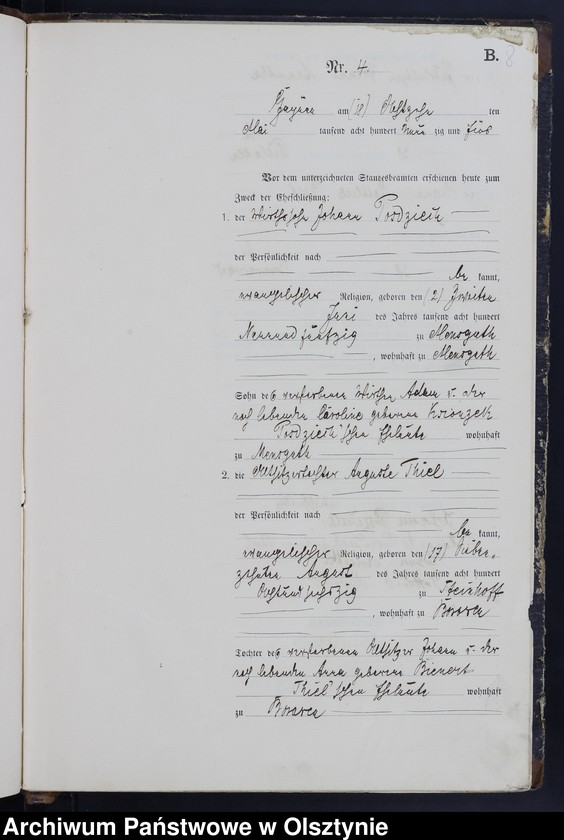 B. 8
Nr. 4.
am (18) Achtzehn ten
Mai tausend acht hundert neun zig und fünf
Vor dem unterzeichneten Standesbeamten erschienen heute zum
Zweck der Eheschließung:
1. der Wirthssohn Johann
der Persönlichkeit nach
be kannt,
evangelischer Religion, geboren den (2) Zweiten
Juni des Jahres tausend acht hundert
Neunundfünfzig zu Mensguth
, wohnhaft zu Mensguth
Sohn des verstorbenen Wirths Adam u. der
noch lebenden Caroline geborene
schen Eheleute wohnhaft
zu Mensguth
2. die Altsitzertochter Auguste Thiel
der Persönlichkeit nach
be kannt,
evangelischer Religion, geboren den (17) Sieben-
zehnten August des Jahres tausend acht hundert
Achtundsechszig zu
, wohnhaft zu
Tochter des verstorbenen Altsitzer Johann u. der
noch lebenden Anna geborene Bienert
Thiel'schen Eheleute wohnhaft
zu
Archiwum Państwowe w Olsztynie